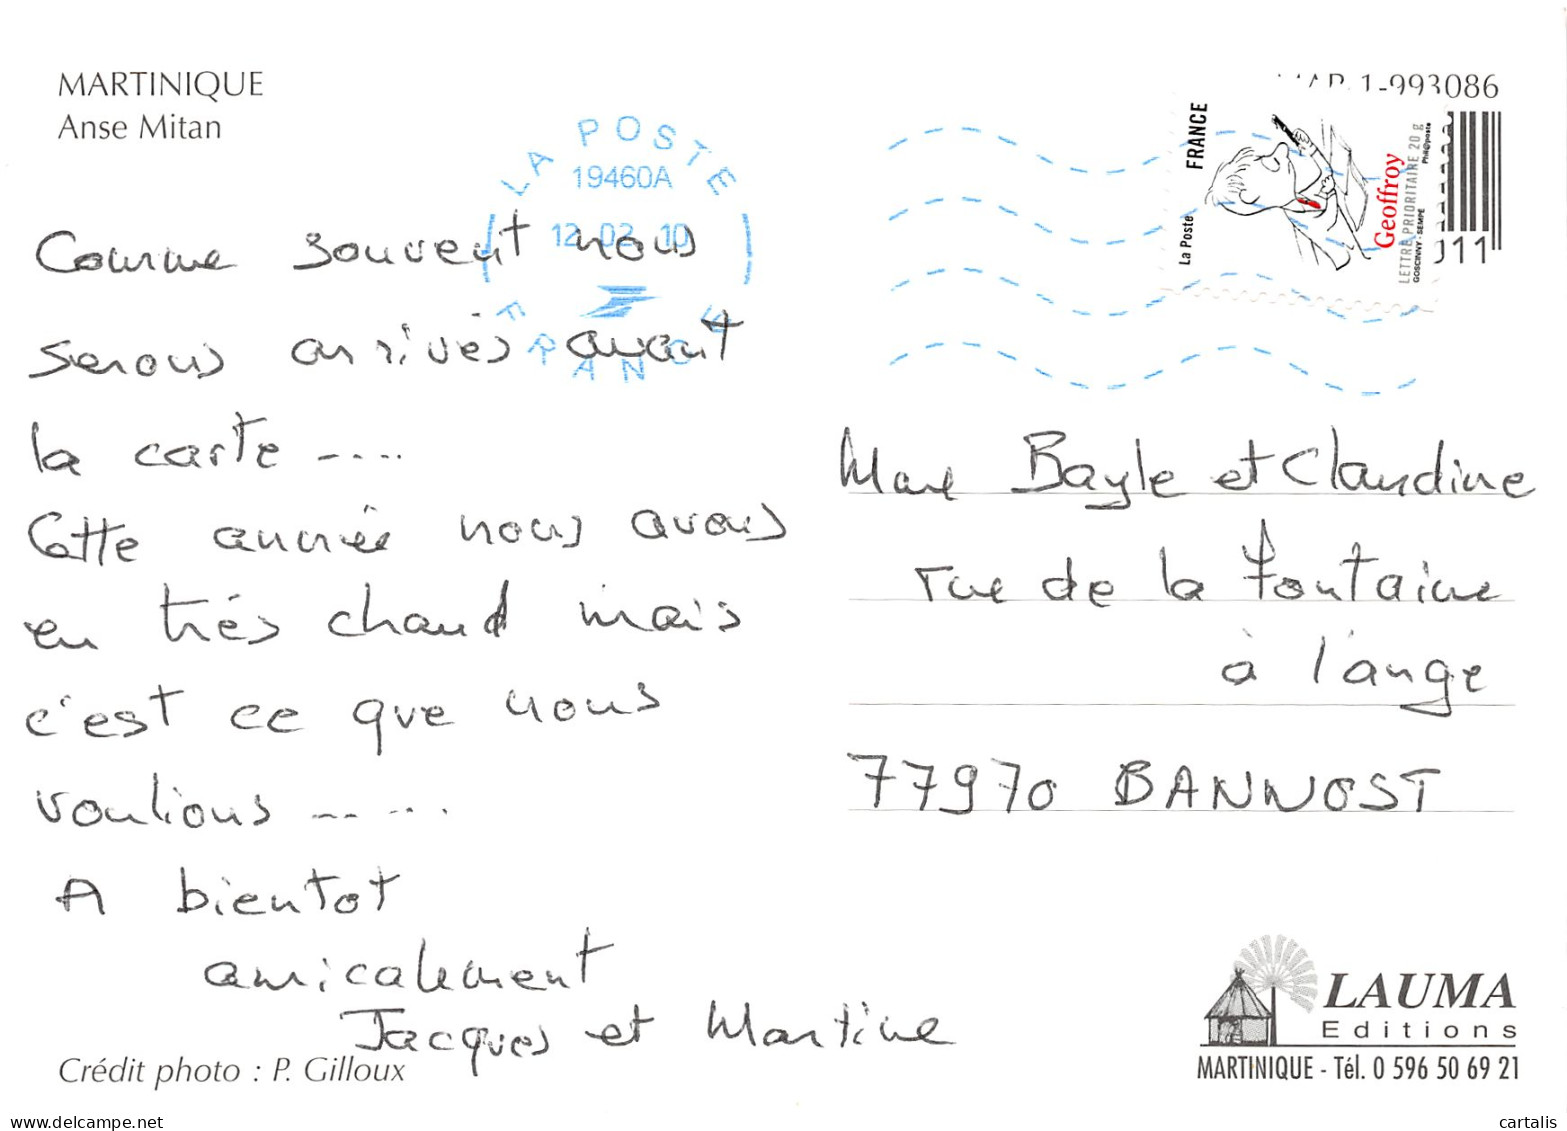 MARTINIQUE
Anse Mitan
1-993086
LA POSTE
19460A
12-02-10
FRANCE
FRANCE
La Poste
Geoffroy
LETTRE PRIORITAIRE 20 g
GOSCINNY - SEMPÉ
Phil@poste
011
Comme souvent nous
serons arrivés avant
la carte ----
Cette année nous avons
eu très chaud mais
c'est ce que nous
voulions -----
A bientot
amicalement
Jacques et Martine
Marc Bayle et Claudine
rue de la Fontaine
à l'ange
77970 BANNOST
Crédit photo : P. Gilloux
LAUMA
Editions
MARTINIQUE - Tél. 0 596 50 69 21
delcampe.net
cartalis